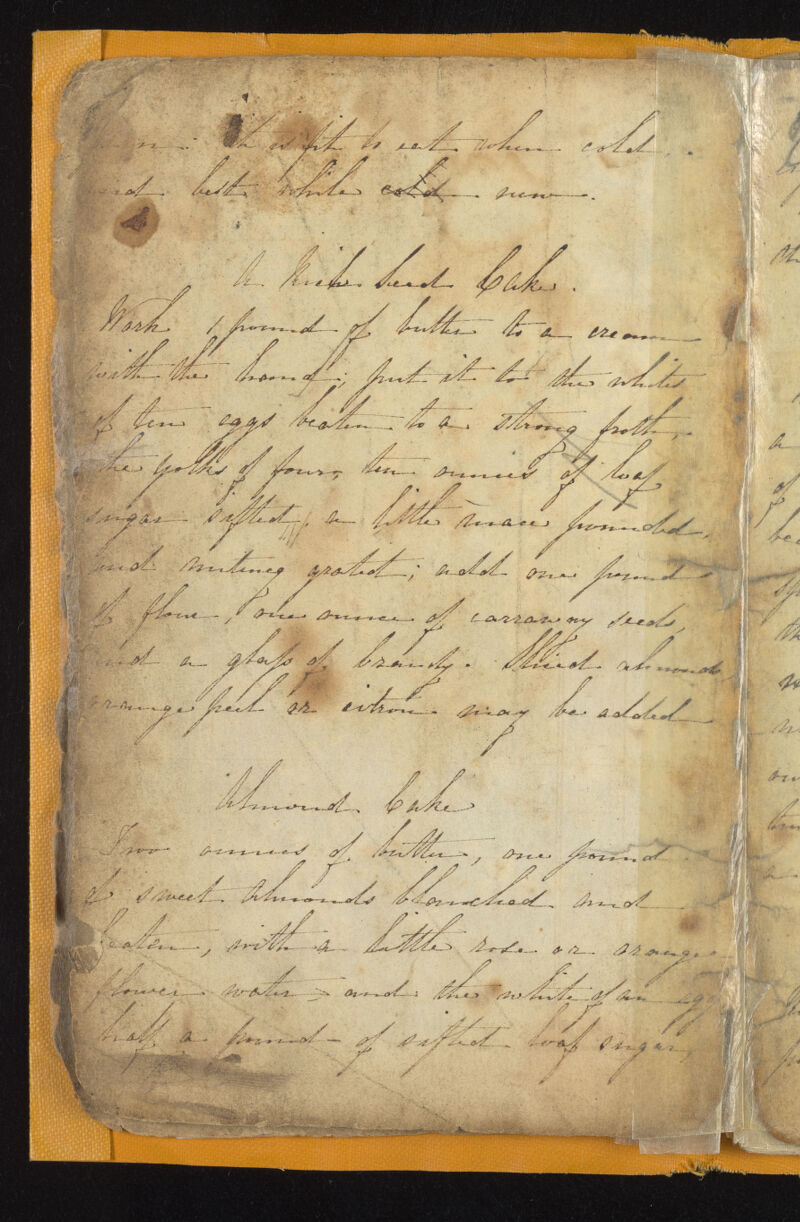 it is fit to eat when cold.
and best while cold new.
A Rich Seed Cake.
Work 1 pound of butter to a cream
with the hand; put it to the whites
of ten eggs beaten to a strong froth,
the yolks of four, ten ounces of loaf
sugar sifted, a little mace pounded,
and nutmeg grated; add one pound
of flour, one ounce of carraway seeds,
and a glass of brandy. Sliced almonds
orange peel or citron may be added
Almond Cake
Two ounces of butter, one pound
of sweet Almonds blanched and
beaten, with a little rose or orange
flower water and the white of an egg
half a pound of sifted loaf sugar,